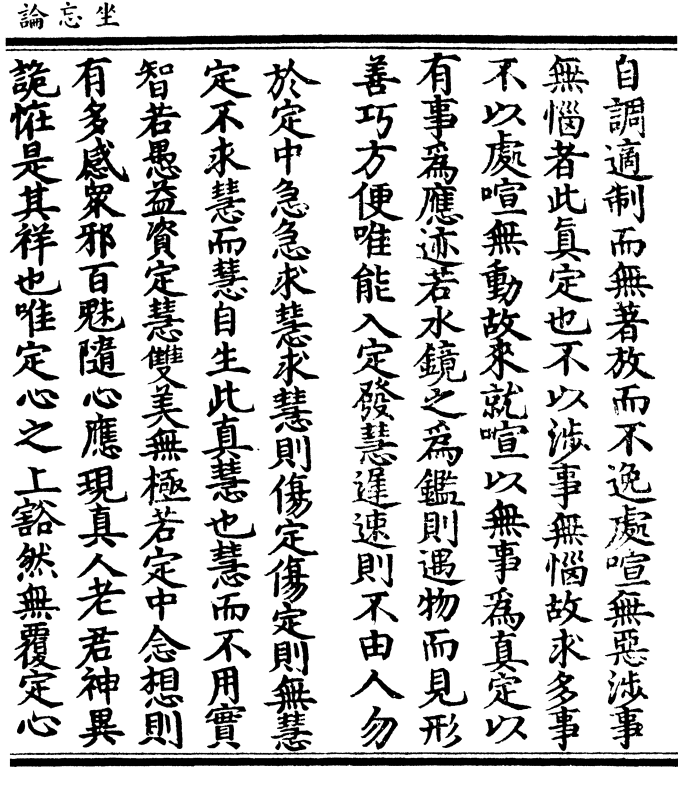 坐忘論
自調適制而無著放而不逸處喧無惡涉事
無惱者此真定也不以涉事無惱故求多事
不以處喧無動故來就喧以無事為真定以
有事為應迹若水鏡之為鑑則遇物而見形
善巧方便唯能入定發慧遲速則不由人勿
於定中急急求慧求慧則傷定傷定則無慧
定不求慧而慧自生此真慧也慧而不用實
智若愚益資定慧雙美無極若定中念想則
有多感眾邪百魅隨心應現真人老君神異
詭怪是其祥也唯定心之上豁然無覆定心